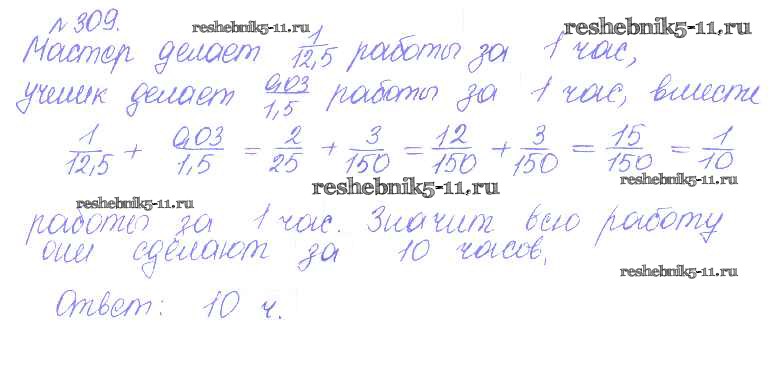 № 309. reshebnik5-11.ru reshebnik5-11.ru
Мастер делает 1/12,5 работы за 1 час,
ученик делает 0,03/1,5 работы за 1 час, вместе
1/12,5 + 0,03/1,5 = 2/25 + 3/150 = 12/150 + 3/150 = 15/150 = 1/10
reshebnik5-11.ru reshebnik5-11.ru
reshebnik5-11.ru
работы за 1 час. Значит всю работу
они сделают за 10 часов.
reshebnik5-11.ru
Ответ: 10 ч.